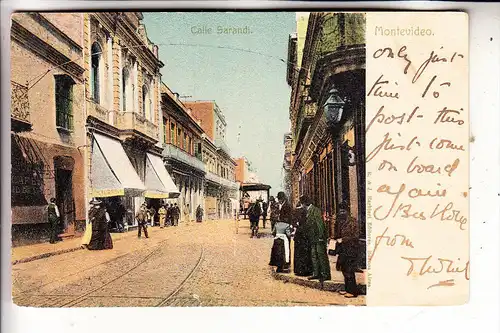 Calle Sarandi.
Montevideo.
only just
time to
post this
just come
on board
again.
from